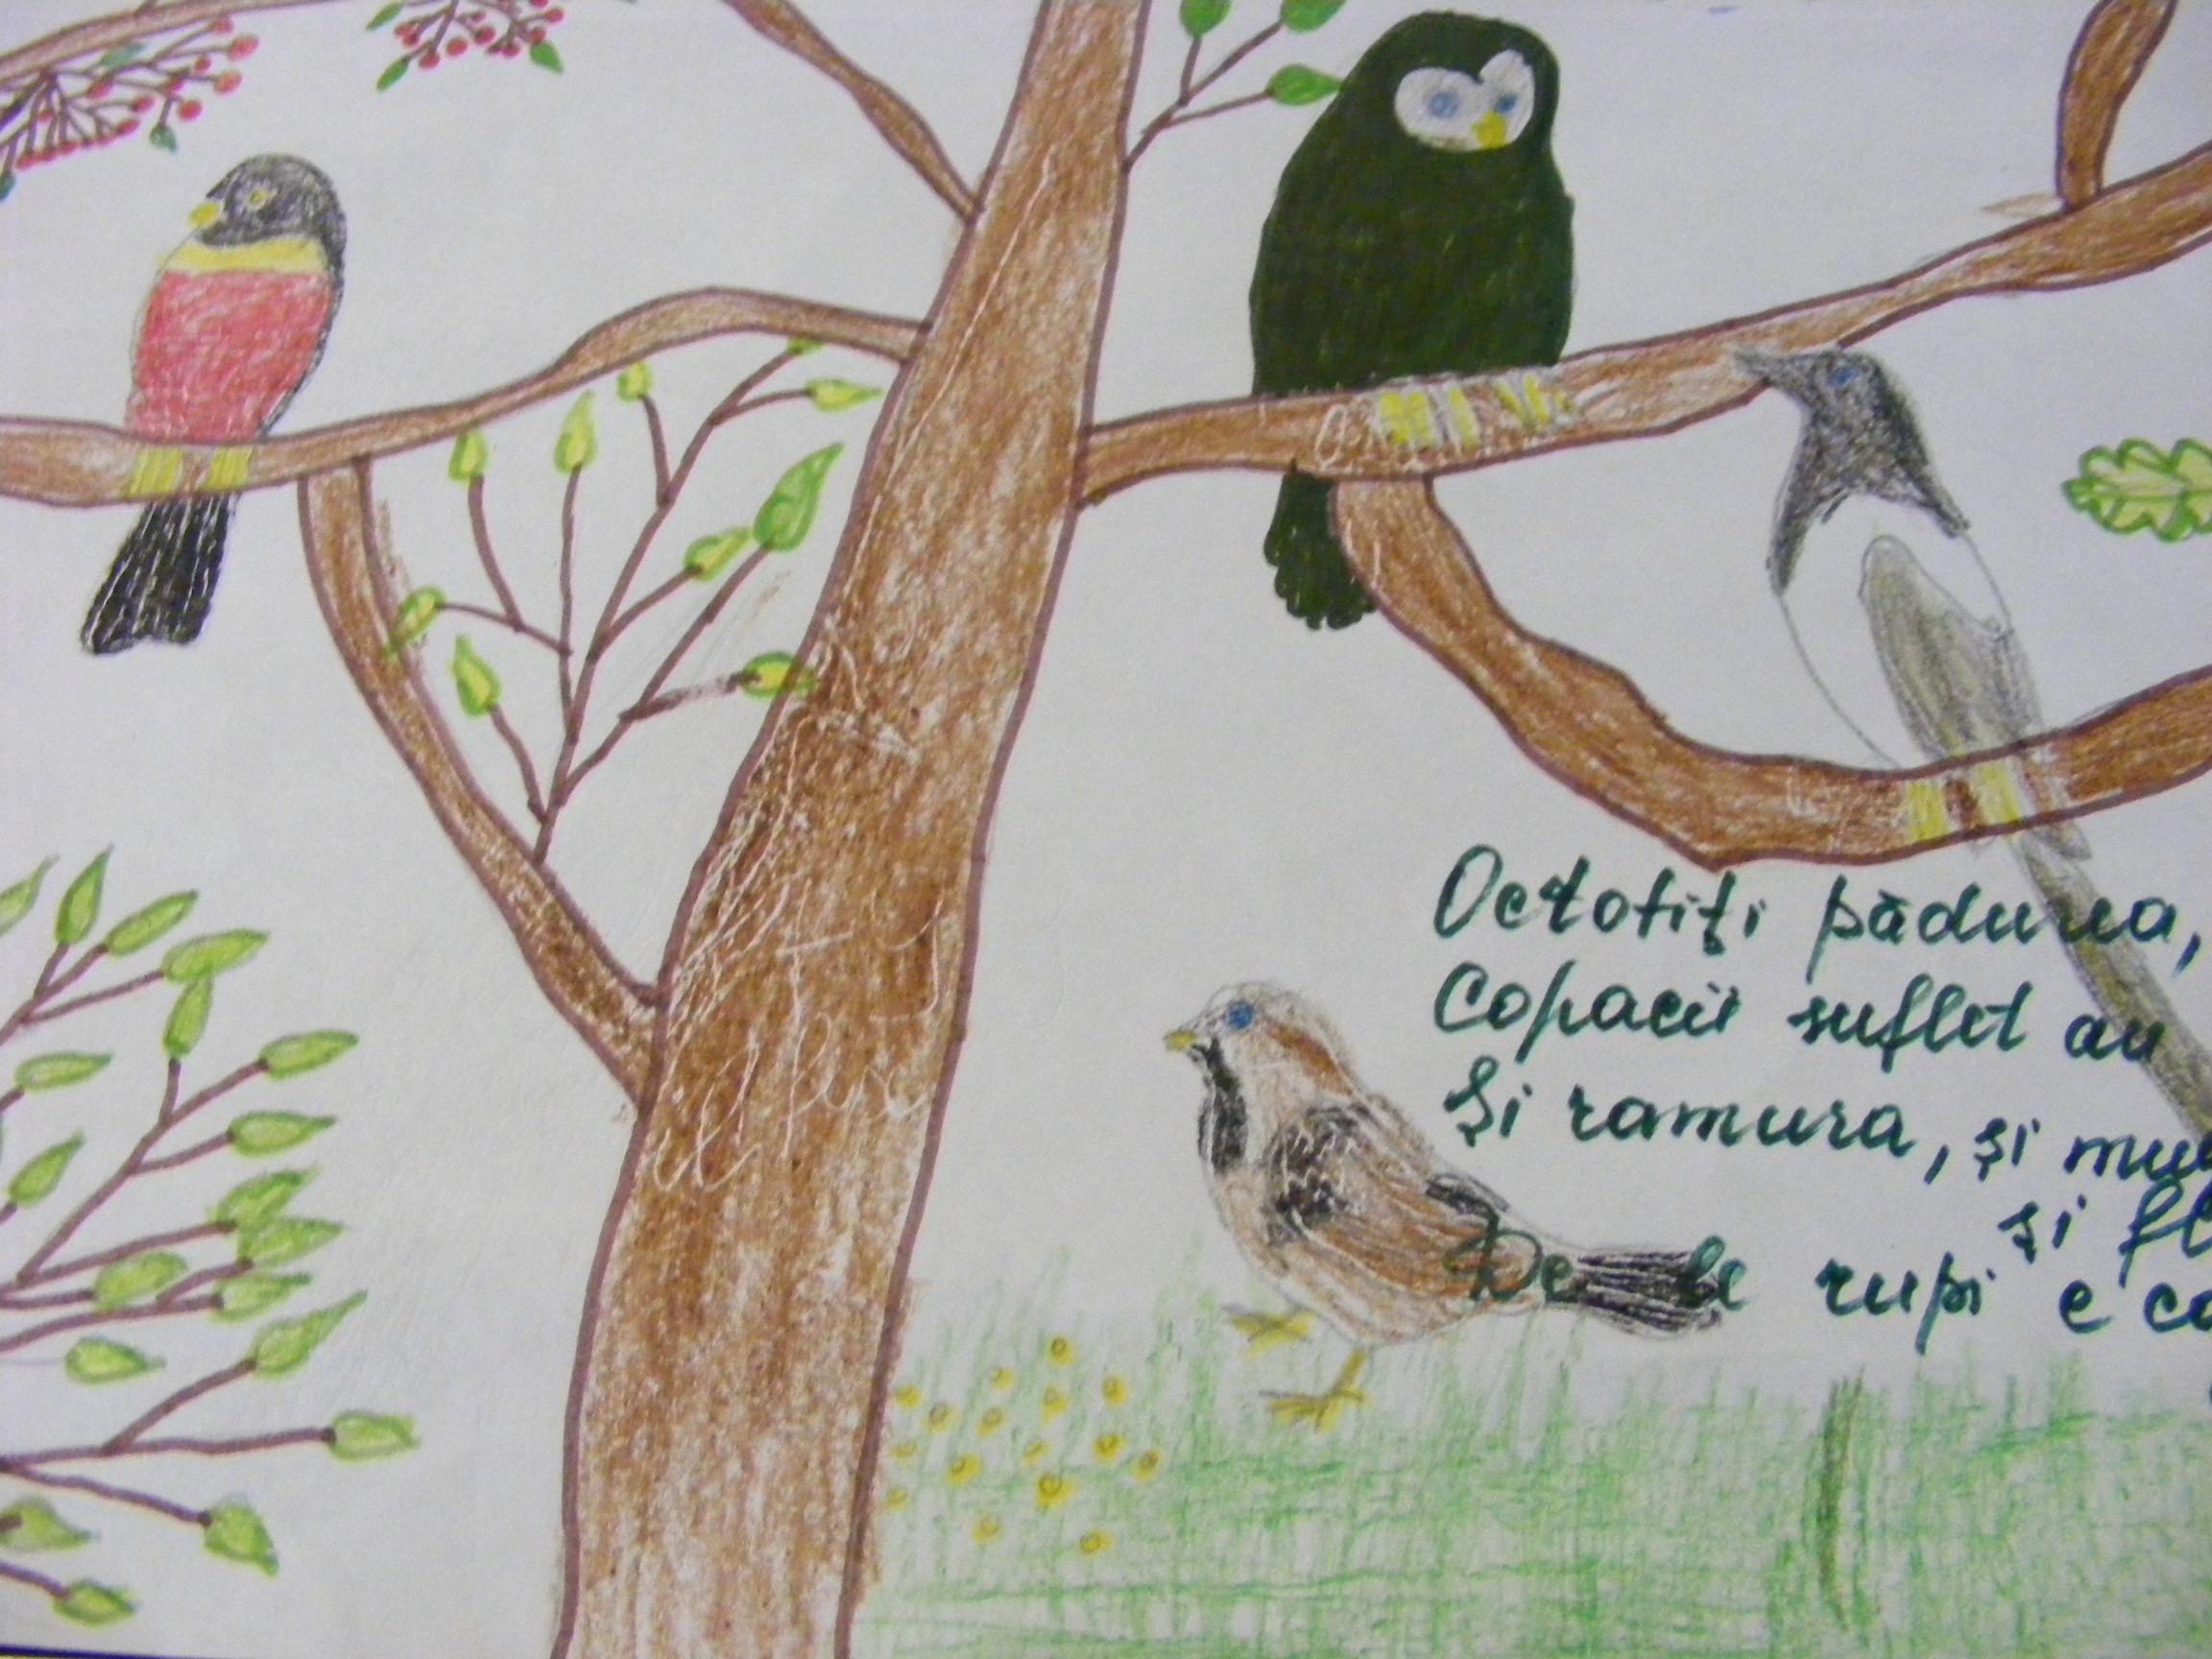 Octotiţi pădurea,
Copacii suflet au
Şi ramura, şi
şi
De le rupi e